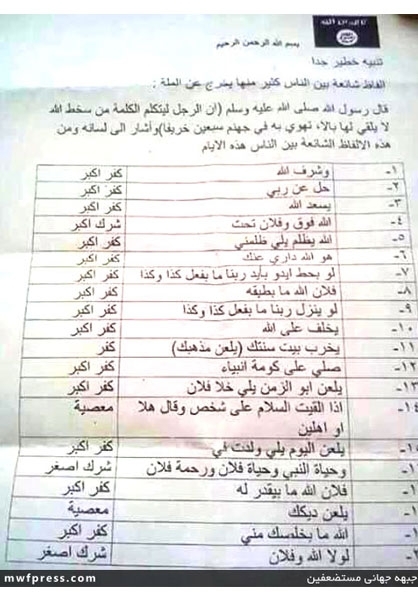 بسم الله الرحمن الرحيم
تنبيه خطير جدا
الفاظ شائعة بين الناس كثير منها يخرج عن الملة :
قال رسول الله صلى الله عليه وسلم (ان الرجل ليتكلم الكلمة من سخط الله
لا يلقي لها بالا، تهوي به في جهنم سبعين خريفا)وأشار الى لسانه ومن
هذه الالفاظ الشائعة بين الناس هذه الايام
١- وشرف الله كفر اكبر
٢- حل عن ربي كفر اكبر
٣- يسعد الله كفر اكبر
٤- الله فوق وفلان تحت شرك اكبر
٥- الله يظلم يلي ظلمني كفر اكبر
٦- هو الله داري عنك كفر اكبر
٧- لو بحط ايدو بأيد ربنا ما بفعل كذا وكذا كفر اكبر
٨- فلان الله ما بطيقه كفر اكبر
٩- لو ينزل ربنا ما بفعل كذا وكذا كفر اكبر
١٠- يخلف على الله كفر اكبر
١١- يخرب بيت سنتك (يلعن مذهبك) كفر
١٢- صلي على كومة انبياء كفر اكبر
١٣- يلعن ابو الزمن يلي خلا فلان كفر اكبر
١٤- اذا القيت السلام على شخص وقال هلا معصية
او اهلين
يلعن اليوم يلي ولدت في كفر اكبر
وحياة النبي وحياة فلان ورحمة فلان شرك اصغر
فلان الله ما بيقدر له كفر اكبر
يلعن ديكك معصية
الله ما بخلصك مني كفر اكبر
لولا الله وفلان شرك اصغر
mwfpress.com جبهه جهانی مستضعفین